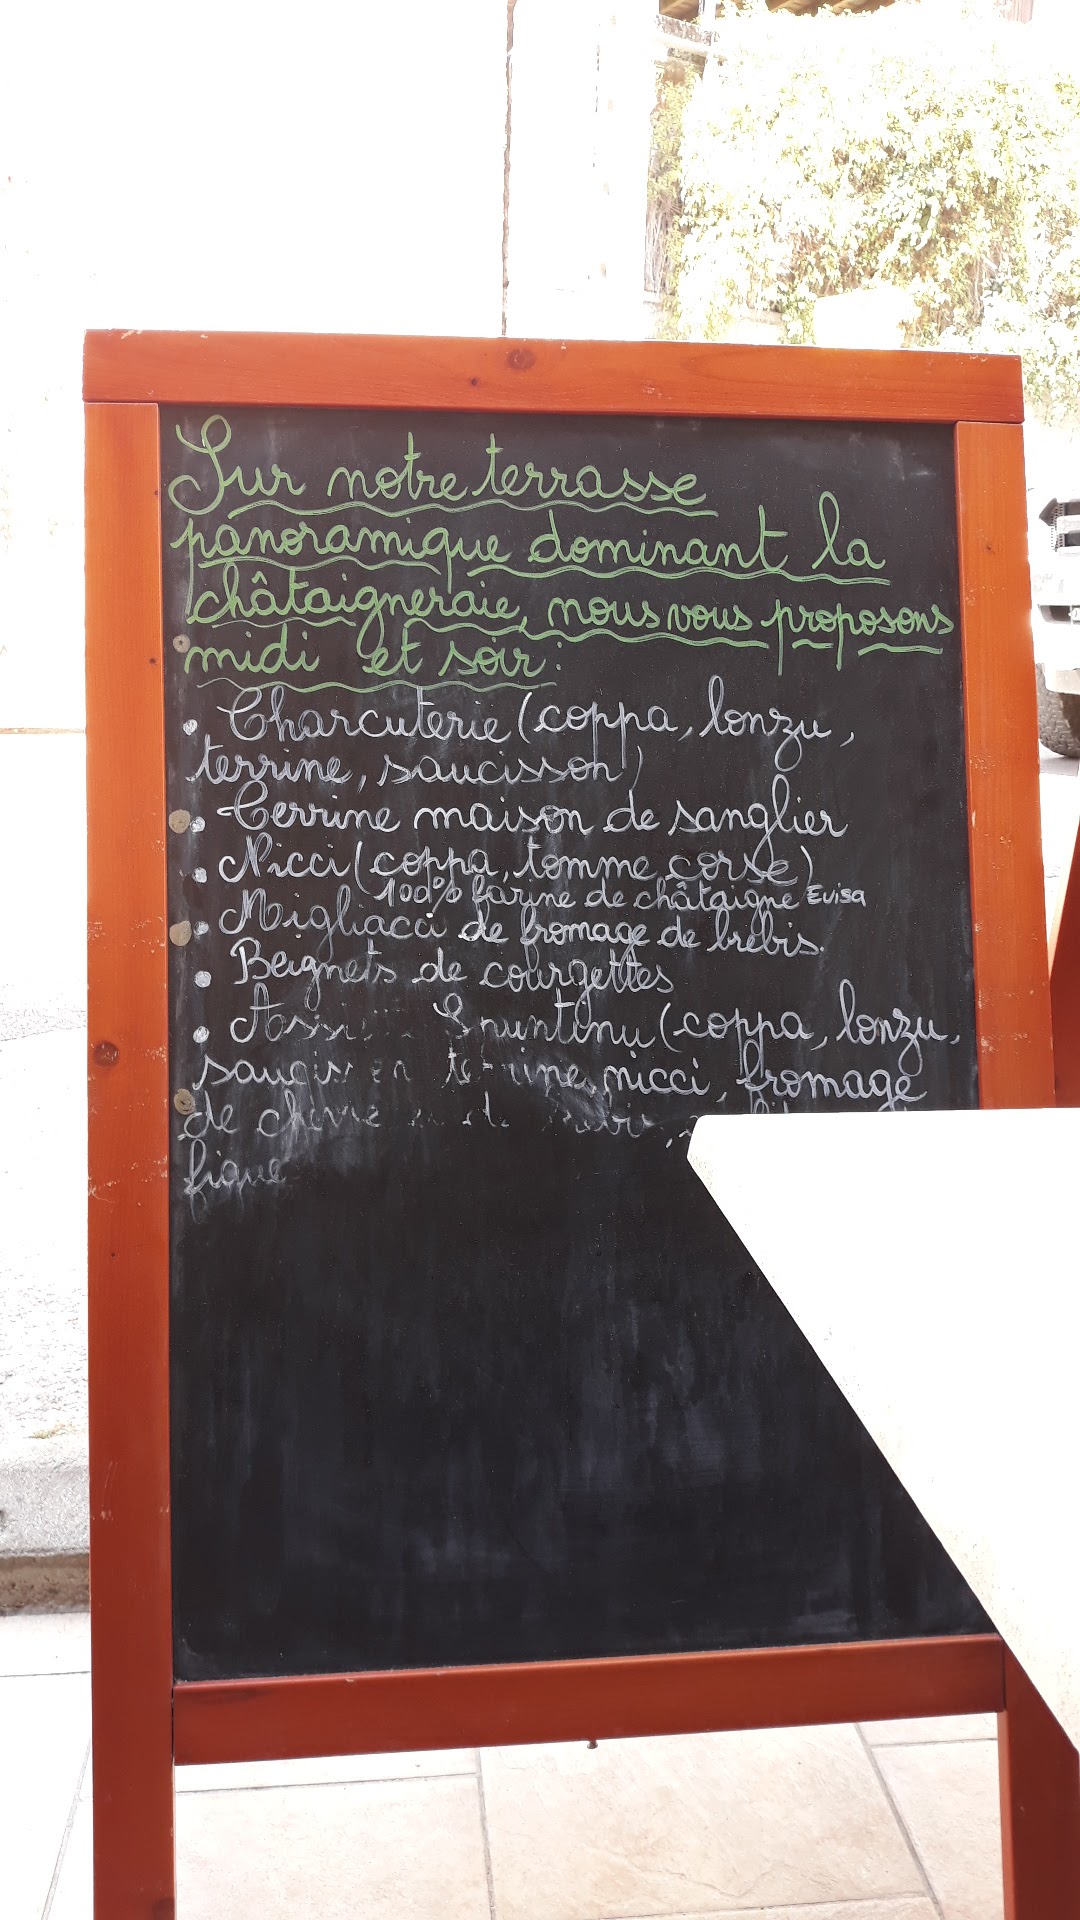 Sur notre terrasse
panoramique dominant la
châtaigneraie, nous vous proposons
midi et soir :
• Charcuterie (coppa, lonzu,
terrine, saucisson)
• Terrine maison de sanglier
• Nicci (coppa, tomme corse)
100% farine de châtaigne Evisa
• Migliacci de fromage de brebis.
• Beignets de courgettes
• Spuntinu (coppa, lonzu,
terrine, nicci, fromage
de
figue